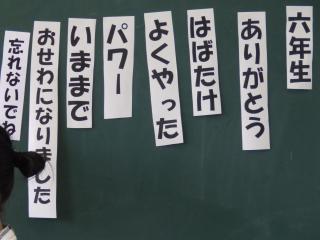 六年生
ありがとう
はばたけ
よくやった
パワー
いままで
おせわになりました
忘れないでね